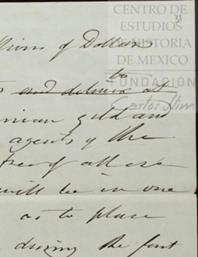 CENTRO DE
ESTUDIOS
DE HISTORIA
DE MEXICO
FUNDACIÓN
Carlos Slim
31
of Dollars
to
and deliver at
gold and
agents of the
free of all
will be in one
as to place
during the